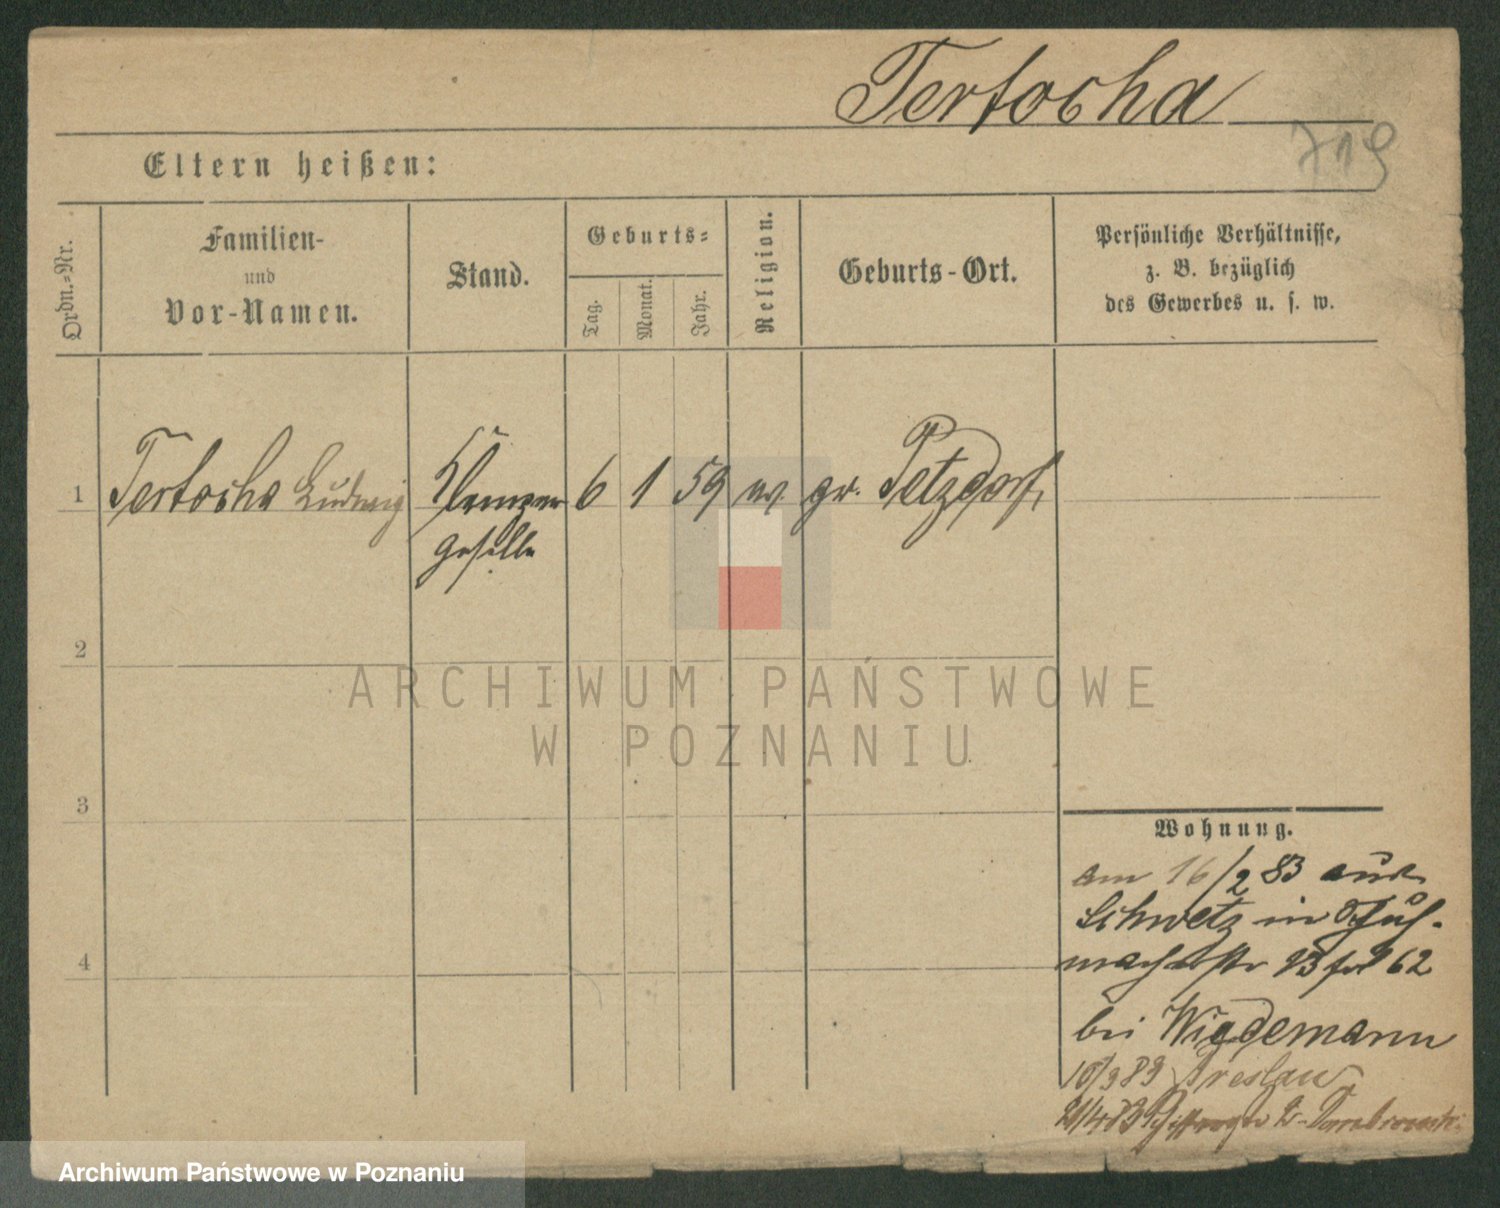 Tertocha
719
Eltern heißen:
Ordn.-Nr.
Familien-
und
Vor-Namen.
Stand.
Geburts-
Tag.
Monat.
Jahr.
Religion.
Geburts-Ort.
Persönliche Verhältnisse,
z. B. bezüglich
des Gewerbes u. s. w.
1 Tertocha Ludwig Klempner 6 1 59 gr. Petzdorf
geselle
2
3
4
ARCHIWUM PAŃSTWOWE
W POZNANIU
Wohnung.
am 16/2 83 aus
Schwetz in Schuh-
macherstr 13 fol 62
bei Wiedemann
10/3 83 Breslau
21/4 83
Archiwum Państwowe w Poznaniu